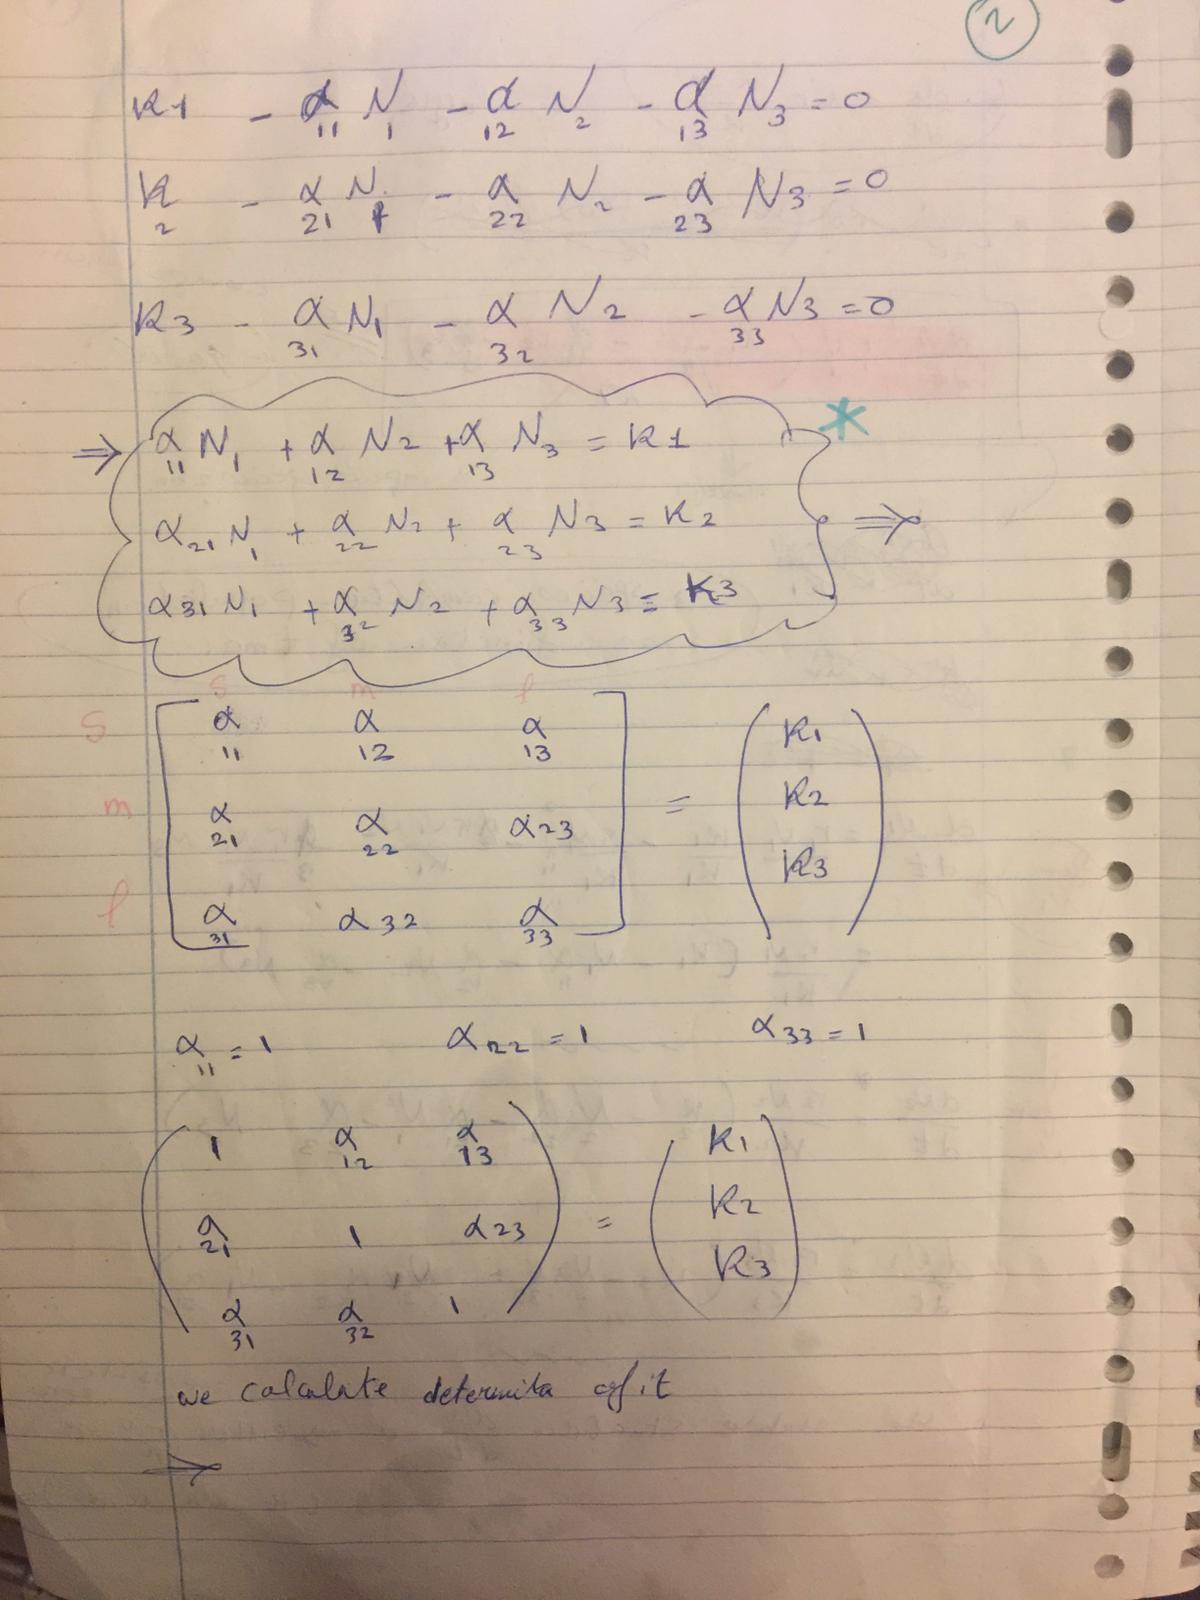 2
K1 - α11 N1 - α12 N2 - α13 N3 = 0
K2 - α21 N1 - α22 N2 - α23 N3 = 0
K3 - α31 N1 - α32 N2 - α33 N3 = 0
⇒ α11 N1 + α12 N2 + α13 N3 = K1 *
α21 N1 + α22 N2 + α23 N3 = K2 ⇒
α31 N1 + α32 N2 + α33 N3 = K3
s m l
s α11 α12 α13 K1
m α21 α22 α23 = K2
l α31 α32 α33 K3
α11 = 1 α22 = 1 α33 = 1
1 α12 α13 K1
α21 1 α23 = K2
α31 α32 1 K3
we calculate determita of it
⇒